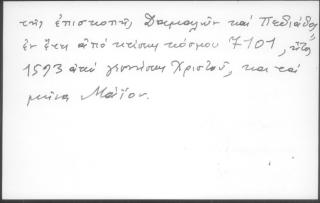 τῆς ἐπισκοπῆς Δαμαλῶν καὶ Πεδιάδος
ἐν ἔτει ἀπό κτίσεως κόσμου 7101, ἤτοι
1593 ἀπό γεννήσεως Χριστοῦ, κατά
μῆνα Μάϊον.